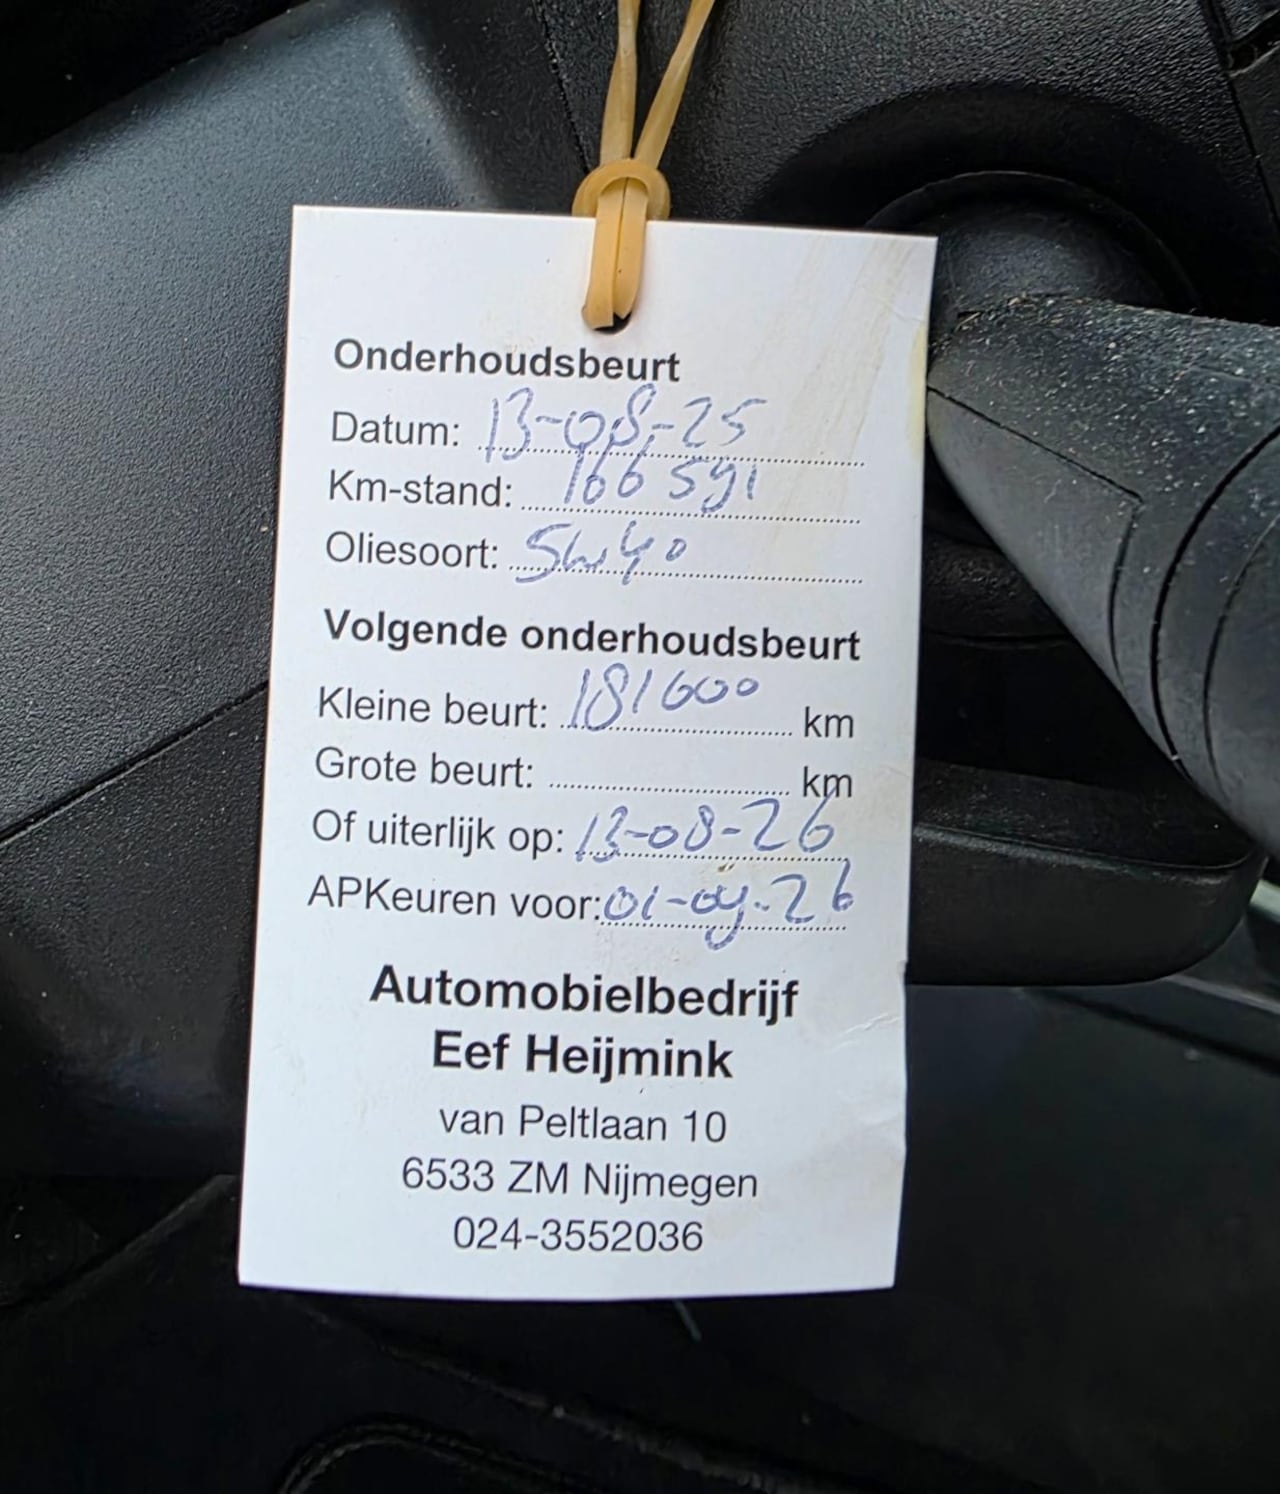 Onderhoudsbeurt
Datum: 13-08-25
Km-stand: 166 591
Oliesoort: 5w40
Volgende onderhoudsbeurt
Kleine beurt: 181600 km
Grote beurt: km
Of uiterlijk op: 13-08-26
APKeuren voor: 01-09-26
Automobielbedrijf
Eef Heijmink
van Peltlaan 10
6533 ZM Nijmegen
024-3552036